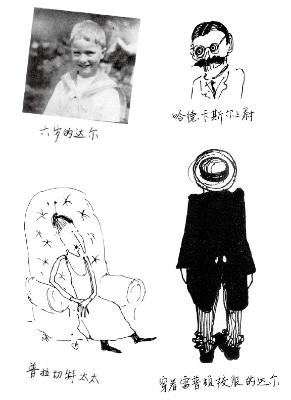 六岁的达尔
哈德卡斯尔上尉
普拉切特太太
穿着雷普顿校服的达尔